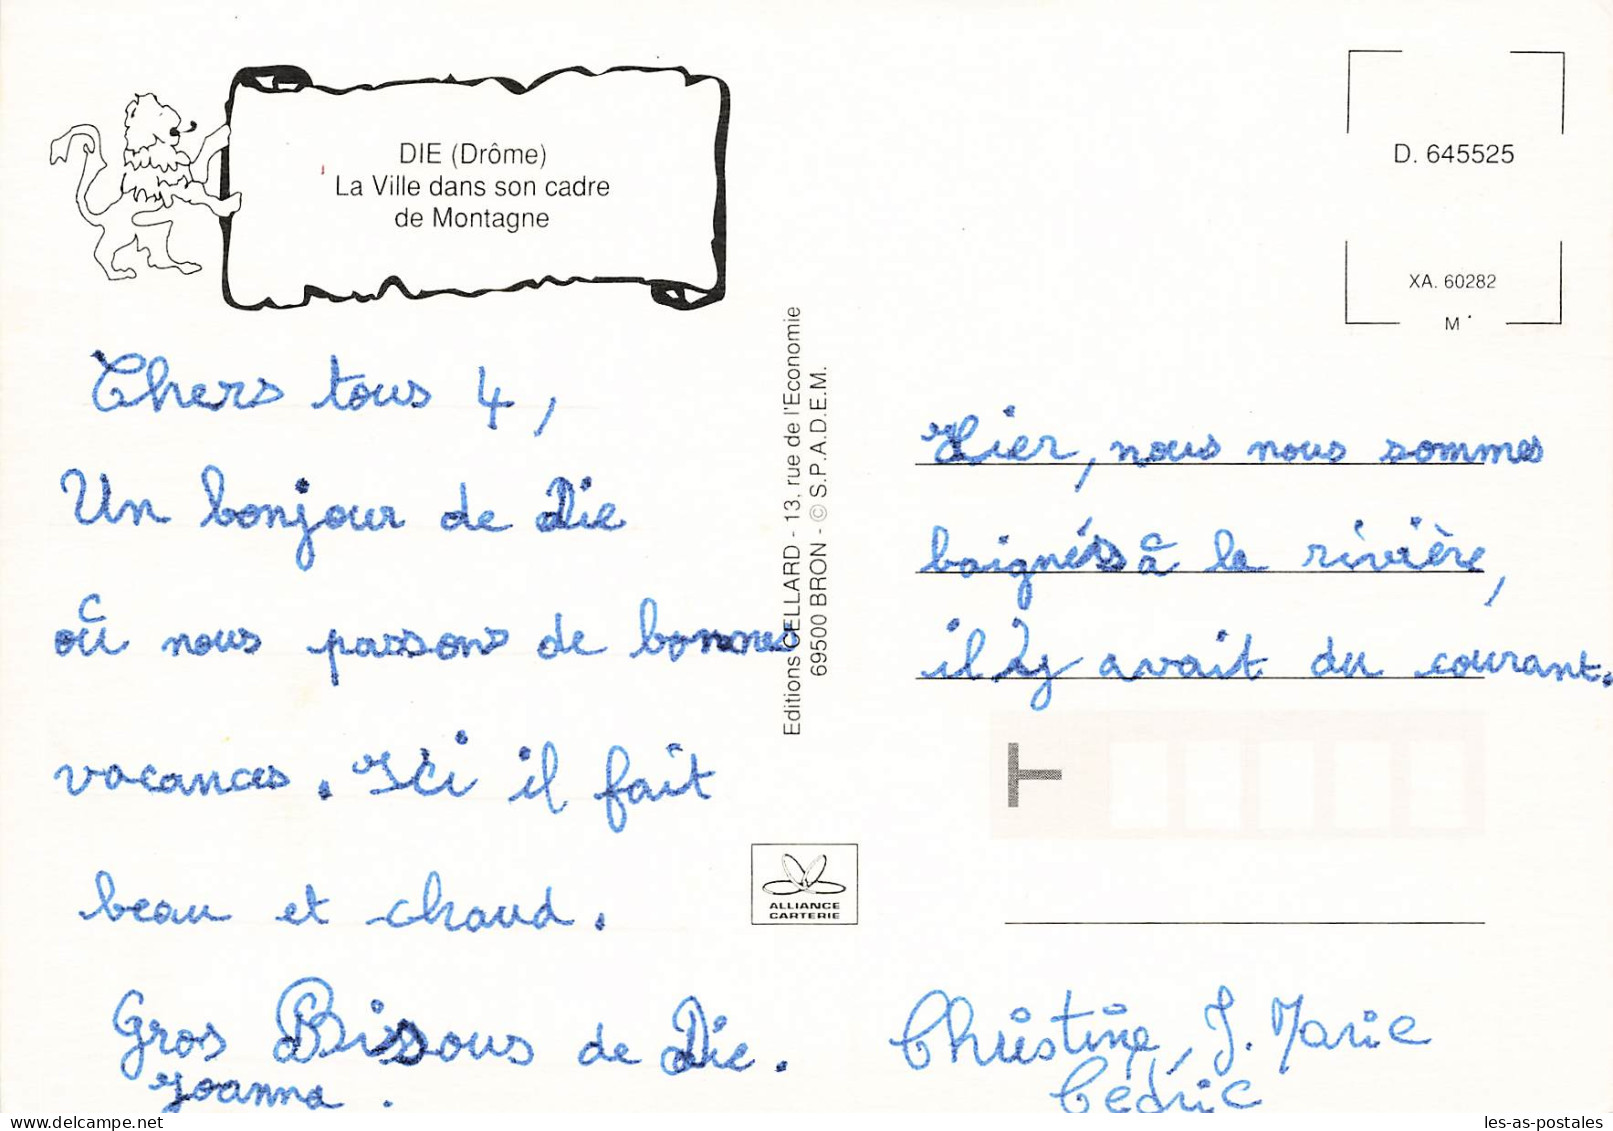 DIE (Drôme)
La Ville dans son cadre
de Montagne
D. 645525
XA. 60282
M
Chers tous 4,
Un bonjour de Die
où nous passons de bonnes
vacances. Ici il fait
beau et chaud.
Gros Bisous de Die.
Joanna.
Editions CELLARD - 13, rue de l'Economie
69500 BRON - © S.P.A.D.E.M.
ALLIANCE
CARTERIE
Hier, nous nous sommes
baignés à la rivière,
il y avait du courant.
T
Christine, J. Marie
Cédric
les-as-postales